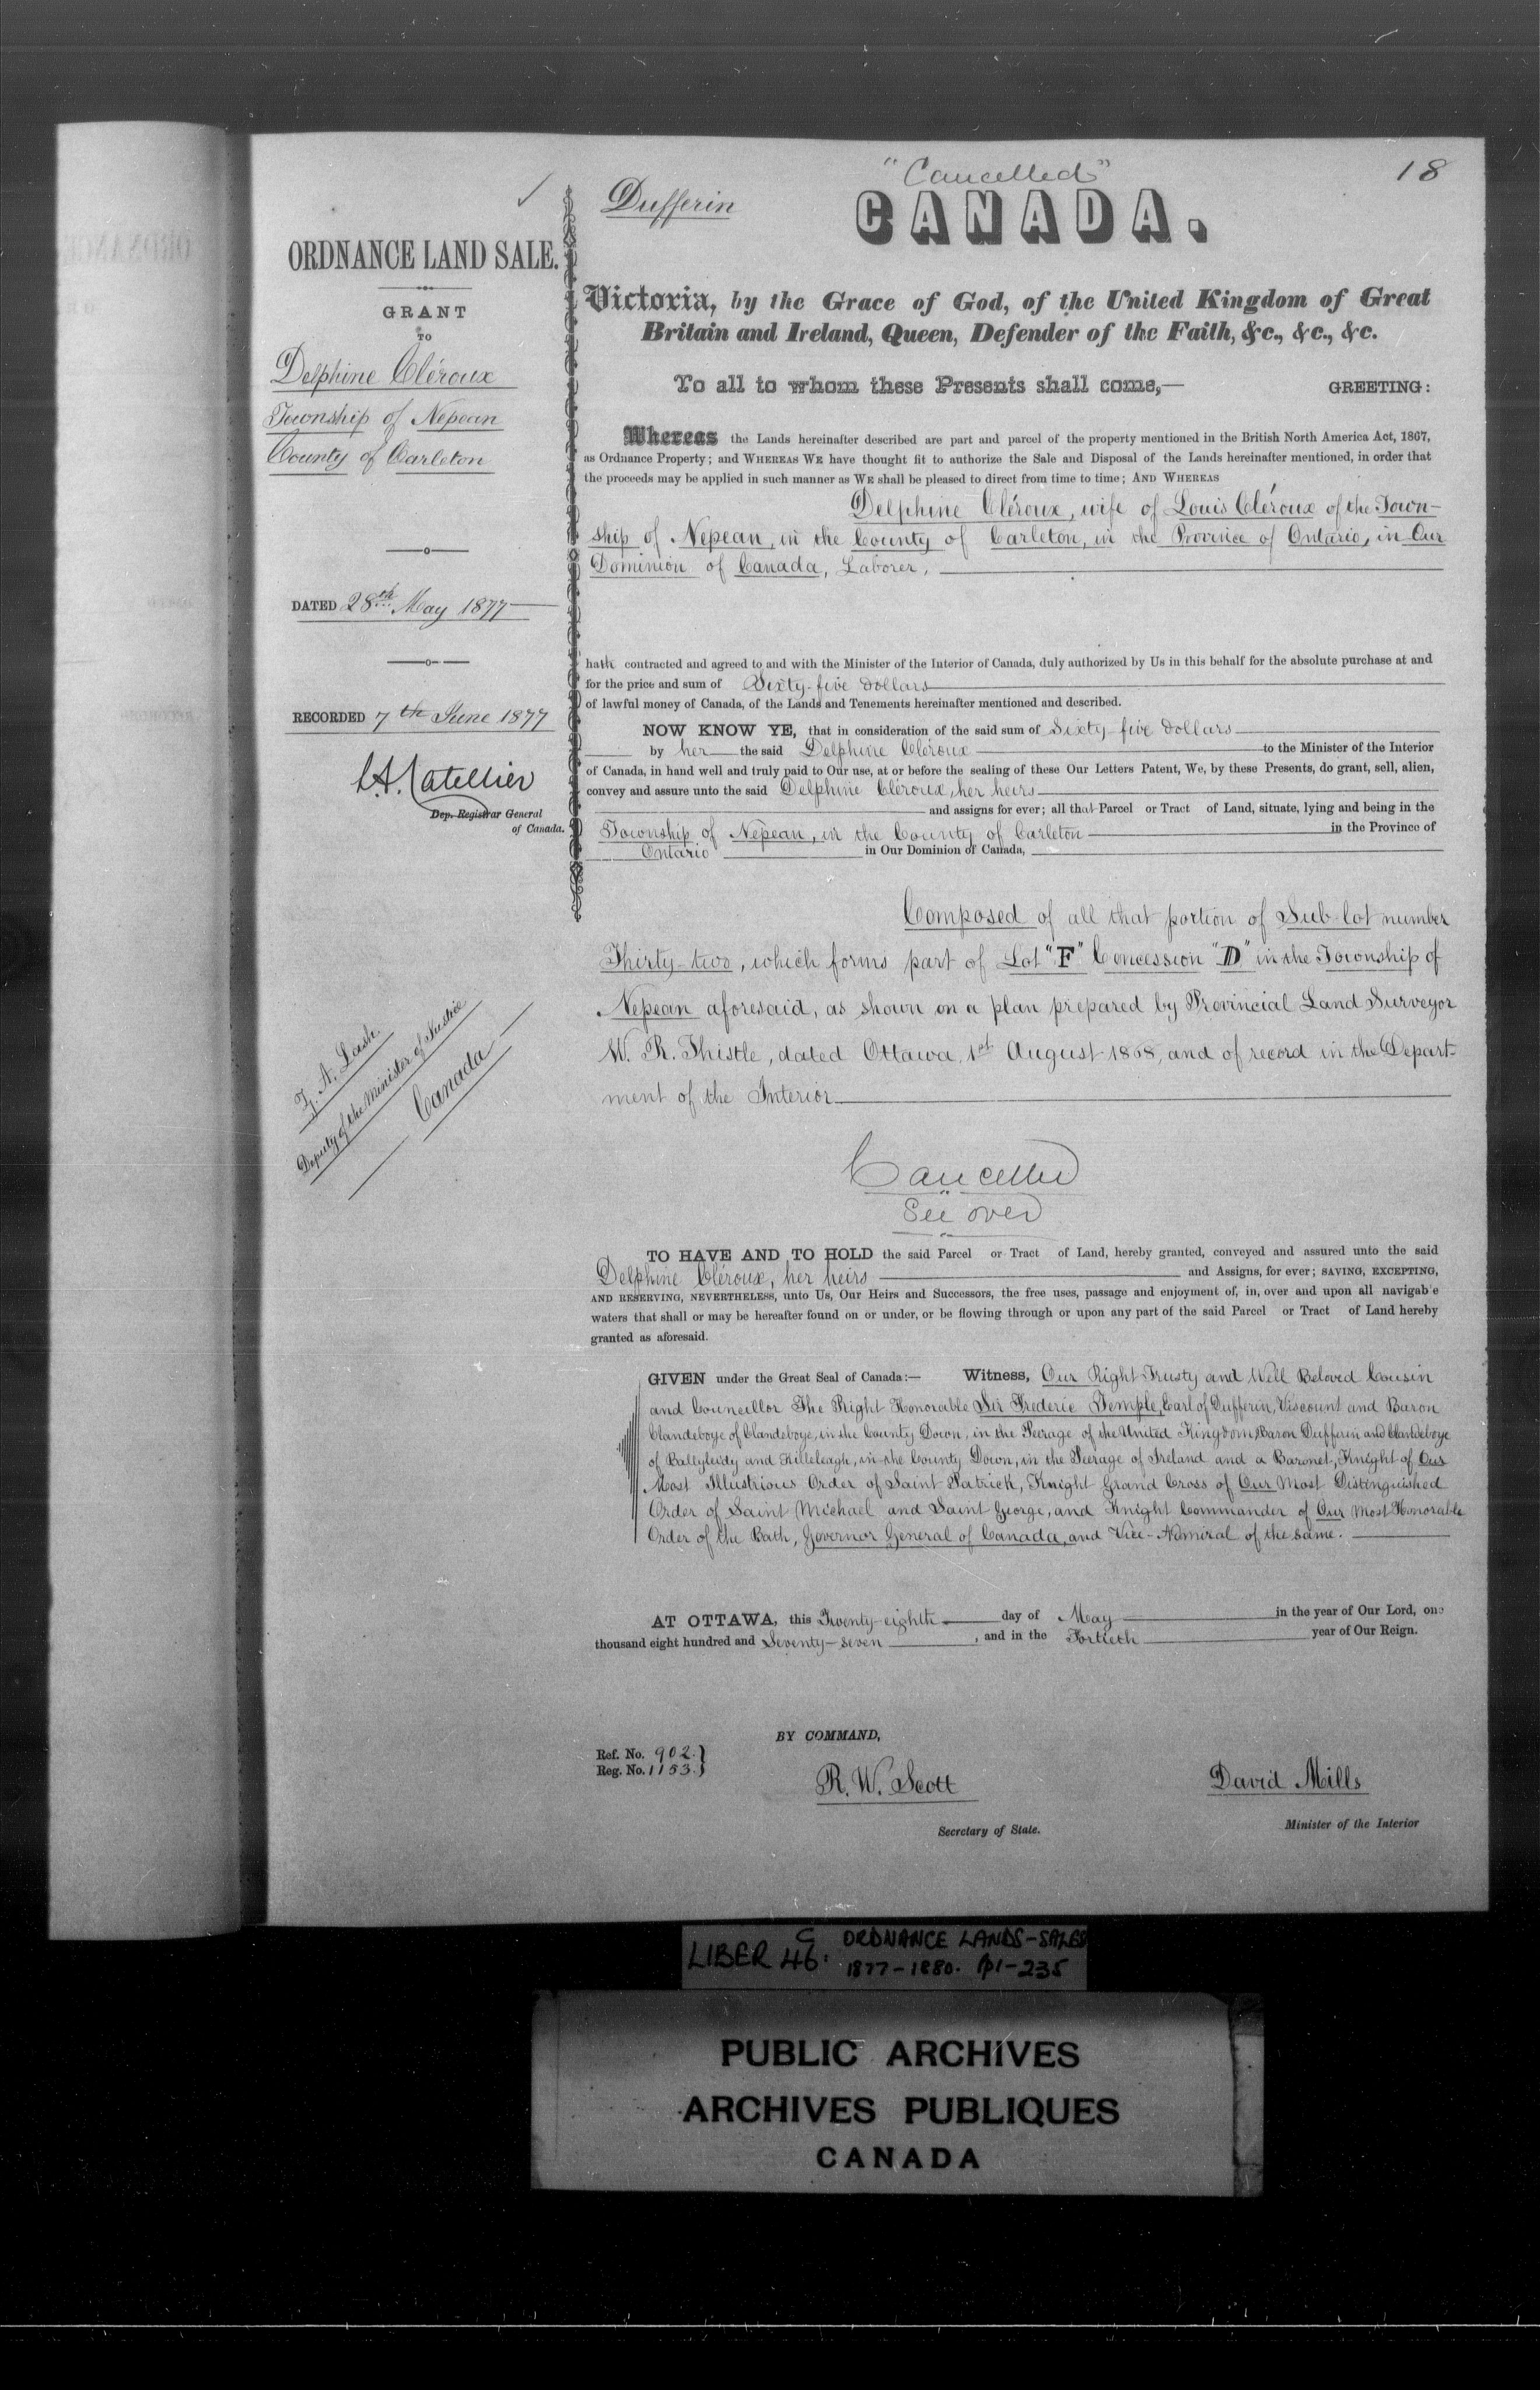 "Cancelled"
18
Dufferin
CANADA.
ORDNANCE LAND SALE.
GRANT
TO
Delphine Cléroux
Township of Nepean
County of Carleton
DATED 28th May 1877
RECORDED 7th June 1877
L.A. Catellier
Dep. Registrar General
of Canada.
Z. A. Lash.
Deputy of the Minister of Justice
Canada
Victoria, by the Grace of God, of the United Kingdom of Great
Britain and Ireland, Queen, Defender of the Faith, &c., &c., &c.
To all to whom these Presents shall come,— GREETING:
Whereas the Lands hereinafter described are part and parcel of the property mentioned in the British North America Act, 1867,
as Ordnance Property; and WHEREAS WE have thought fit to authorize the Sale and Disposal of the Lands hereinafter mentioned, in order that
the proceeds may be applied in such manner as WE shall be pleased to direct from time to time; AND WHEREAS
Delphine Cléroux, wife of Louis Cléroux of the Town-
ship of Nepean, in the County of Carleton, in the Province of Ontario, in Our
Dominion of Canada, Laborer,
hath contracted and agreed to and with the Minister of the Interior of Canada, duly authorized by Us in this behalf for the absolute purchase at and
for the price and sum of Sixty-five dollars
of lawful money of Canada, of the Lands and Tenements hereinafter mentioned and described.
NOW KNOW YE, that in consideration of the said sum of Sixty five dollars
by her the said Delphine Cléroux to the Minister of the Interior
of Canada, in hand well and truly paid to Our use, at or before the sealing of these Our Letters Patent, We, by these Presents, do grant, sell, alien,
convey and assure unto the said Delphine Cléroux, her heirs
and assigns for ever; all that Parcel or Tract of Land, situate, lying and being in the
Township of Nepean, in the County of Carleton in the Province of
Ontario in Our Dominion of Canada,
Composed of all that portion of Sub-lot number
Thirty-two, which forms part of Lot "F" Concession "D" in the Township of
Nepean aforesaid, as shown on a plan prepared by Provincial Land Surveyor
W. R. Thistle, dated Ottawa, 1st August 1868, and of record in the Depart-
ment of the Interior
Cancelled
See over
TO HAVE AND TO HOLD the said Parcel or Tract of Land, hereby granted, conveyed and assured unto the said
Delphine Cléroux, her heirs and Assigns, for ever; SAVING, EXCEPTING,
AND RESERVING, NEVERTHELESS, unto Us, Our Heirs and Successors, the free uses, passage and enjoyment of, in, over and upon all navigab e
waters that shall or may be hereafter found on or under, or be flowing through or upon any part of the said Parcel or Tract of Land hereby
granted as aforesaid.
GIVEN under the Great Seal of Canada:— Witness, Our Right Trusty and Well Beloved Cousin
and Councillor The Right Honorable Sir Frederic Temple, Earl of Dufferin, Viscount and Baron
Clandeboye of Clandeboye, in the County Down, in the Peerage of the United Kingdom, Baron Dufferin and Clandeboye
of Ballyleidy and Killeleagh, in the County Down, in the Peerage of Ireland and a Baronet, Knight of Our
Most Illustrious Order of Saint Patrick, Knight Grand Cross of Our Most Distinguished
Order of Saint Michael and Saint George, and Knight Commander of Our Most Honorable
Order of the Bath, Governor General of Canada, and Vice-Admiral of the same.
AT OTTAWA, this Twenty-eighth day of May in the year of Our Lord, one
thousand eight hundred and Seventy-seven, and in the Fortieth year of Our Reign.
BY COMMAND,
Ref. No. 902.
Reg. No. 1153.
R. W. Scott
Secretary of State.
David Mills
Minister of the Interior
LIBER 46. C ORDNANCE LANDS-SALES
1877-1880. p1-235
PUBLIC ARCHIVES
ARCHIVES PUBLIQUES
CANADA